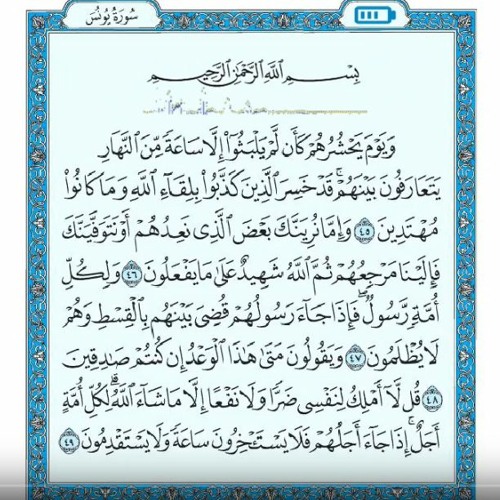 سُورَةُ يُونُسَ
بِسْمِ ٱللَّهِ ٱلرَّحْمَٰنِ ٱلرَّحِيمِ
وَيَوْمَ يَحْشُرُهُمْ كَأَن لَّمْ يَلْبَثُوٓا۟ إِلَّا سَاعَةً مِّنَ ٱلنَّهَارِ
يَتَعَارَفُونَ بَيْنَهُمْ ۚ قَدْ خَسِرَ ٱلَّذِينَ كَذَّبُوا۟ بِلِقَآءِ ٱللَّهِ وَمَا كَانُوا۟
مُهْتَدِينَ ٤٥ وَإِمَّا نُرِيَنَّكَ بَعْضَ ٱلَّذِى نَعِدُهُمْ أَوْ نَتَوَفَّيَنَّكَ
فَإِلَيْنَا مَرْجِعُهُمْ ثُمَّ ٱللَّهُ شَهِيدٌ عَلَىٰ مَا يَفْعَلُونَ ٤٦ وَلِكُلِّ
أُمَّةٍ رَّسُولٌ ۖ فَإِذَا جَآءَ رَسُولُهُمْ قُضِىَ بَيْنَهُم بِٱلْقِسْطِ وَهُمْ
لَا يُظْلَمُونَ ٤٧ وَيَقُولُونَ مَتَىٰ هَٰذَا ٱلْوَعْدُ إِن كُنتُمْ صَٰدِقِينَ
٤٨ قُل لَّآ أَمْلِكُ لِنَفْسِى ضَرًّا وَلَا نَفْعًا إِلَّا مَا شَآءَ ٱللَّهُ ۗ لِكُلِّ أُمَّةٍ
أَجَلٌ ۚ إِذَا جَآءَ أَجَلُهُمْ فَلَا يَسْتَـْٔخِرُونَ سَاعَةً وَلَا يَسْتَقْدِمُونَ ٤٩